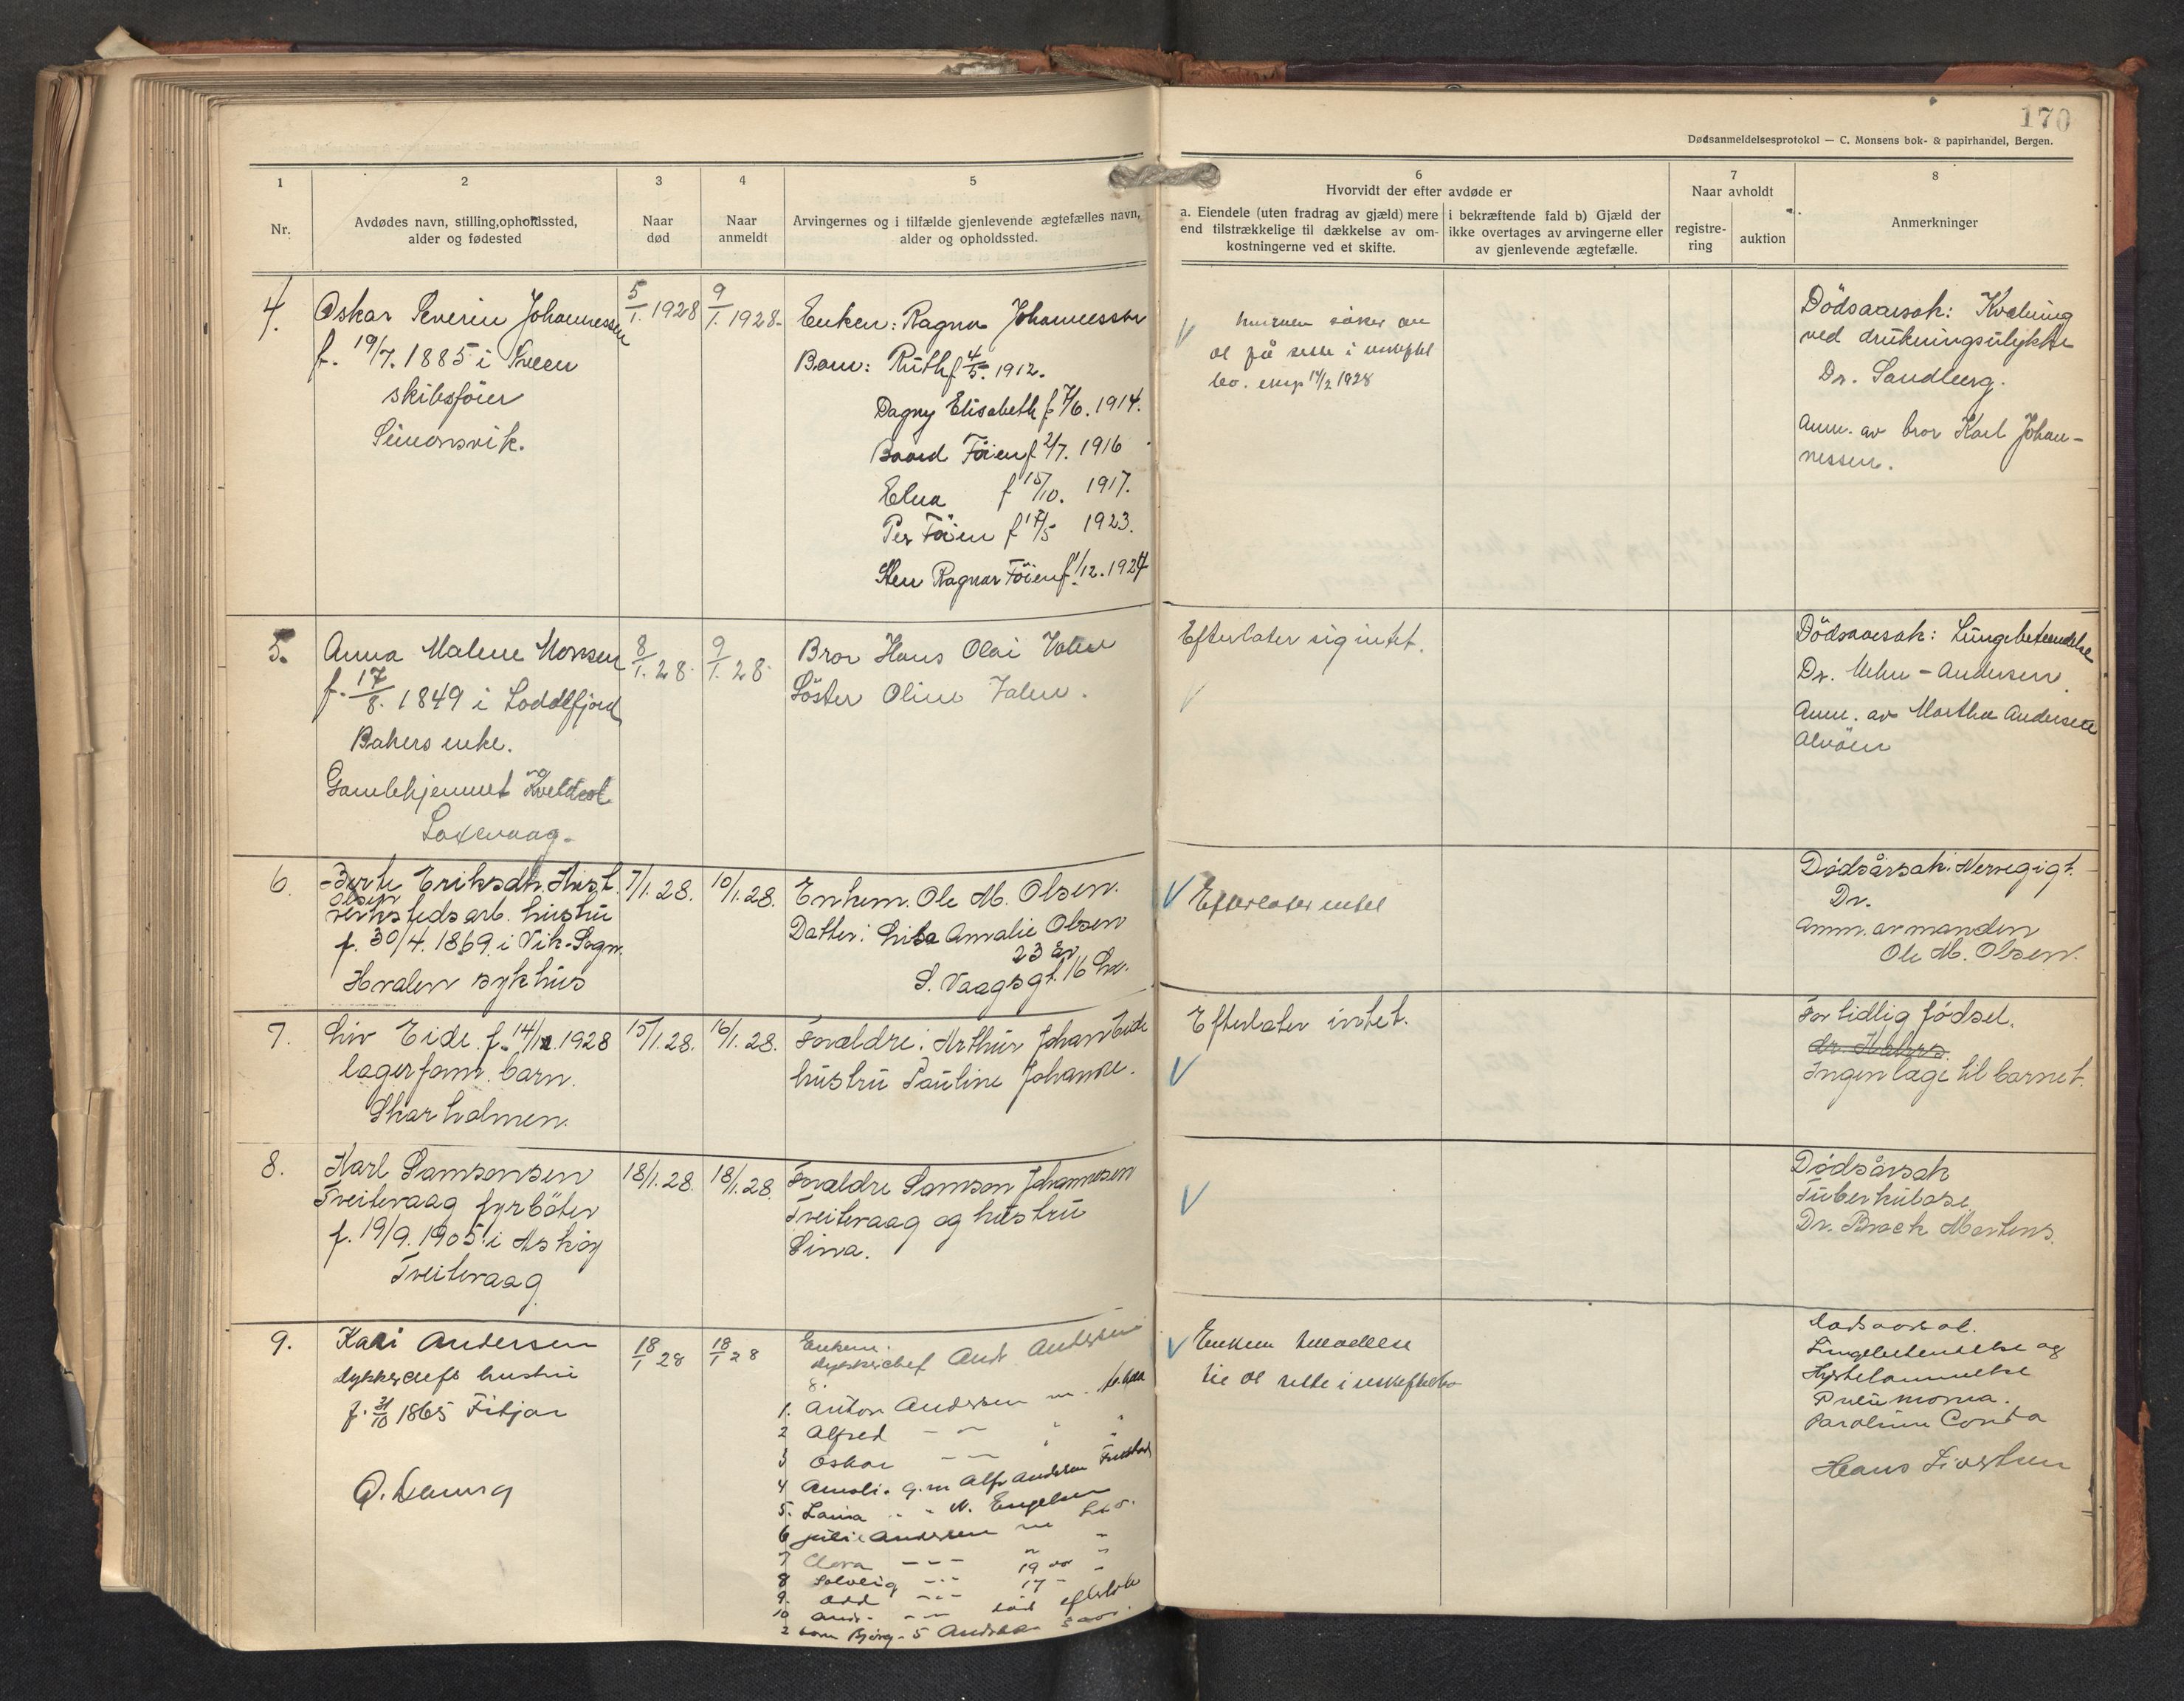 170
Dødsanmeldelsesprotokol — C. Monsens bok- & papirhandel, Bergen.
1
Nr.
2
Avdødes navn, stilling, opholdssted,
alder og fødested
3
Naar
død
4
Naar
anmeldt
5
Arvingernes og i tilfælde gjenlevende ægtefælles navn,
alder og opholdssted.
6
Hvorvidt der efter avdøde er
a. Eiendele (uten fradrag av gjæld) mere
end tilstrækkelige til dækkelse av om-
kostningerne ved et skifte.
i bekræftende fald b) Gjæld der
ikke overtages av arvingerne eller
av gjenlevende ægtefælle.
7
Naar avholdt
registre-
ring
auktion
8
Anmerkninger
4.
Oskar Severin Johannessen
f. 19/7. 1885 i Sveen
skibsfører
Simonsvik.
5/1. 1928
9/1. 1928.
Enken: Ragna Johannessen
Barn: Ruth f 4/5. 1912.
Dagny Elisabeth f 7/6. 1914.
Baard Föien f 2/7. 1916
Elna f 15/10. 1917.
Per Föien f 17/5 1923.
Sten Ragnar Föien f 1/12. 1924
søker om
at få sitte i uskiftet
bo. eksp 14/2 1928
Dödsaarsak: Kvælning
ved drukningsulykke
Dr. Sandberg.
Anm. av bror Karl Johan-
nessen.
5.
Anna Malene Monsen
f. 17/8. 1849 i Loddefjord
Bakers enke.
Gamlehjemmet Kveldsol
Laxevaag.
8/1. 28.
9/1. 28.
Bror Hans Olai Valen
Söster Oline Valen.
Efterlater sig intet.
Dödsaarsak: Lungebetendelse
Dr. Mehn-Andersen
Anm. av Martha Andersen
Alvöen
6.
Berte Eriksdtr. Hist.
Olsen
verkstedsarb. hustru
f. 30/4. 1869. i Vik-Sogn.
Hvalen sykhus
7/1. 28.
10/1. 28.
Enkem. Ole M. Olsen.
Datter: Lisa Amalie Olsen
23 år
S. Vaagsgt. 16 Lv.
Efterlater intet
Dödsårsak: Nervegigt.
Dr.
Anm. av manden
Ole M. Olsen.
7.
Liv Eide. f. 14/1. 1928
lagerform. barn.
Skarholmen.
15/1. 28.
16/1. 28.
Forældre: Arthur Johan Eide
hustru Pauline Johanne.
Efterlater intet.
For tidlig födsel.
Ingen læge til barnet.
8.
Karl Samsonsen
Tveitevaag fyrböter
f. 19/9. 1905. i Askøy
Tveitevaag
18/1. 28.
18/1. 28.
Forældre Samson Johannesen
Tveitevaag og hustru
Sina.
Dödsårsak
Tuberkulose
Dr. Brock Martens.
9.
Kari Andersen
dykkerchefs hustru
f. 31/10 1865 Fitjar
18/1 28
18/1 28
Enkem.
dykkerchef Andr. Andersen
8.
1. Anton Andersen m.
2 Alfred — — " "
3 Oskar — — " "
4 Amali. g.m Alfr Andersen
5. Laura " " N. Engelsen
6 Julie Andersen
7 Clara — — — " "
8 Solveig — — 19 aar "
9. Odd — — 17 – "
10 Andr. — — død
2 barn Bjørg. 5
Enkem
til at sitte i uskiftet bo
Dødsaarsak.
Lungebetendelse og
Hjertelammelse
Pneumonia.
Hans